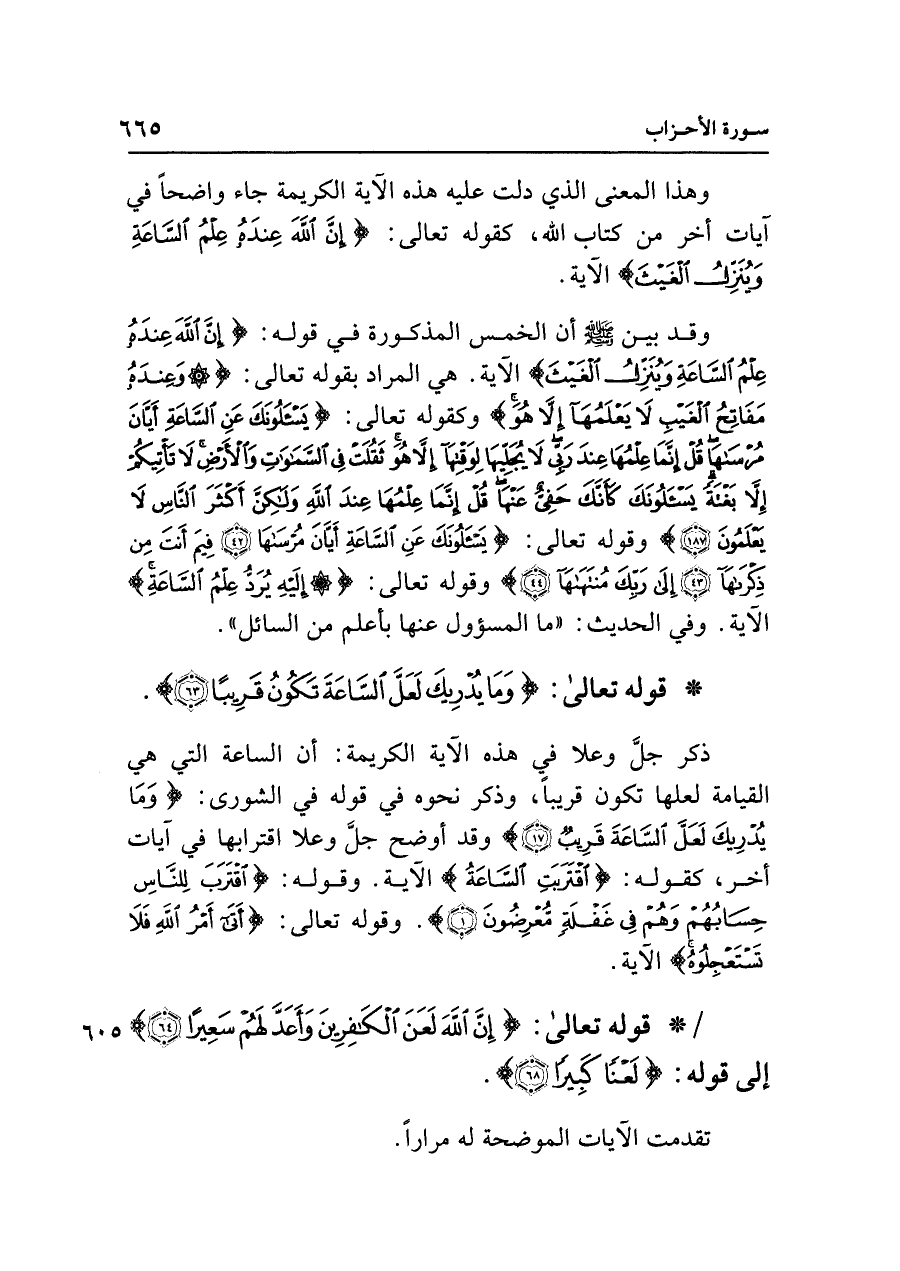 سورة الأحزاب ٦٦٥
وهذا المعنى الذي دلت عليه هذه الآية الكريمة جاء واضحاً في
آيات أخر من كتاب الله، كقوله تعالى: ﴿ إِنَّ ٱللَّهَ عِندَهُۥ عِلْمُ ٱلسَّاعَةِ
وَيُنَزِّلُ ٱلْغَيْثَ﴾ الآية.
وقد بين ﷺ أن الخمس المذكورة في قوله: ﴿ إِنَّ ٱللَّهَ عِندَهُۥ
عِلْمُ ٱلسَّاعَةِ وَيُنَزِّلُ ٱلْغَيْثَ﴾ الآية. هي المراد بقوله تعالى: ﴿ ۞ وَعِندَهُۥ
مَفَاتِحُ ٱلْغَيْبِ لَا يَعْلَمُهَآ إِلَّا هُوَۚ ﴾ وكقوله تعالى: ﴿ يَسْـَٔلُونَكَ عَنِ ٱلسَّاعَةِ أَيَّانَ
مُرْسَىٰهَاۖ قُلْ إِنَّمَا عِلْمُهَا عِندَ رَبِّىۖ لَا يُجَلِّيهَا لِوَقْتِهَآ إِلَّا هُوَۚ ثَقُلَتْ فِى ٱلسَّمَٰوَٰتِ وَٱلْأَرْضِۚ لَا تَأْتِيكُمْ
إِلَّا بَغْتَةًۗ يَسْـَٔلُونَكَ كَأَنَّكَ حَفِىٌّ عَنْهَاۖ قُلْ إِنَّمَا عِلْمُهَا عِندَ ٱللَّهِ وَلَٰكِنَّ أَكْثَرَ ٱلنَّاسِ لَا
يَعْلَمُونَ ١٨٧ ﴾ وقوله تعالى: ﴿ يَسْـَٔلُونَكَ عَنِ ٱلسَّاعَةِ أَيَّانَ مُرْسَىٰهَا ٤٢ فِيمَ أَنتَ مِن
ذِكْرَىٰهَآ ٤٣ إِلَىٰ رَبِّكَ مُنتَهَىٰهَآ ٤٤ ﴾ وقوله تعالى: ﴿ ۞ إِلَيْهِ يُرَدُّ عِلْمُ ٱلسَّاعَةِۚ ﴾
الآية. وفي الحديث: «ما المسؤول عنها بأعلم من السائل».
* قوله تعالىٰ: ﴿ وَمَا يُدْرِيكَ لَعَلَّ ٱلسَّاعَةَ تَكُونُ قَرِيبًا ٦٣ ﴾ .
ذكر جلَّ وعلا في هذه الآية الكريمة: أن الساعة التي هي
القيامة لعلها تكون قريباً، وذكر نحوه في قوله في الشورى: ﴿ وَمَا
يُدْرِيكَ لَعَلَّ ٱلسَّاعَةَ قَرِيبٌ ١٧ ﴾ وقد أوضح جلَّ وعلا اقترابها في آيات
أخر، كقوله: ﴿ ٱقْتَرَبَتِ ٱلسَّاعَةُ ﴾ الآية. وقوله: ﴿ ٱقْتَرَبَ لِلنَّاسِ
حِسَابُهُمْ وَهُمْ فِى غَفْلَةٍ مُّعْرِضُونَ ١ ﴾. وقوله تعالى: ﴿ أَتَىٰٓ أَمْرُ ٱللَّهِ فَلَا
تَسْتَعْجِلُوهُۚ ﴾ الآية.
/ * قوله تعالىٰ: ﴿ إِنَّ ٱللَّهَ لَعَنَ ٱلْكَٰفِرِينَ وَأَعَدَّ لَهُمْ سَعِيرًا ٦٤ ﴾ ٦٠٥
إلى قوله: ﴿ لَعْنًا كَبِيرًا ٦٨ ﴾ .
تقدمت الآيات الموضحة له مراراً.